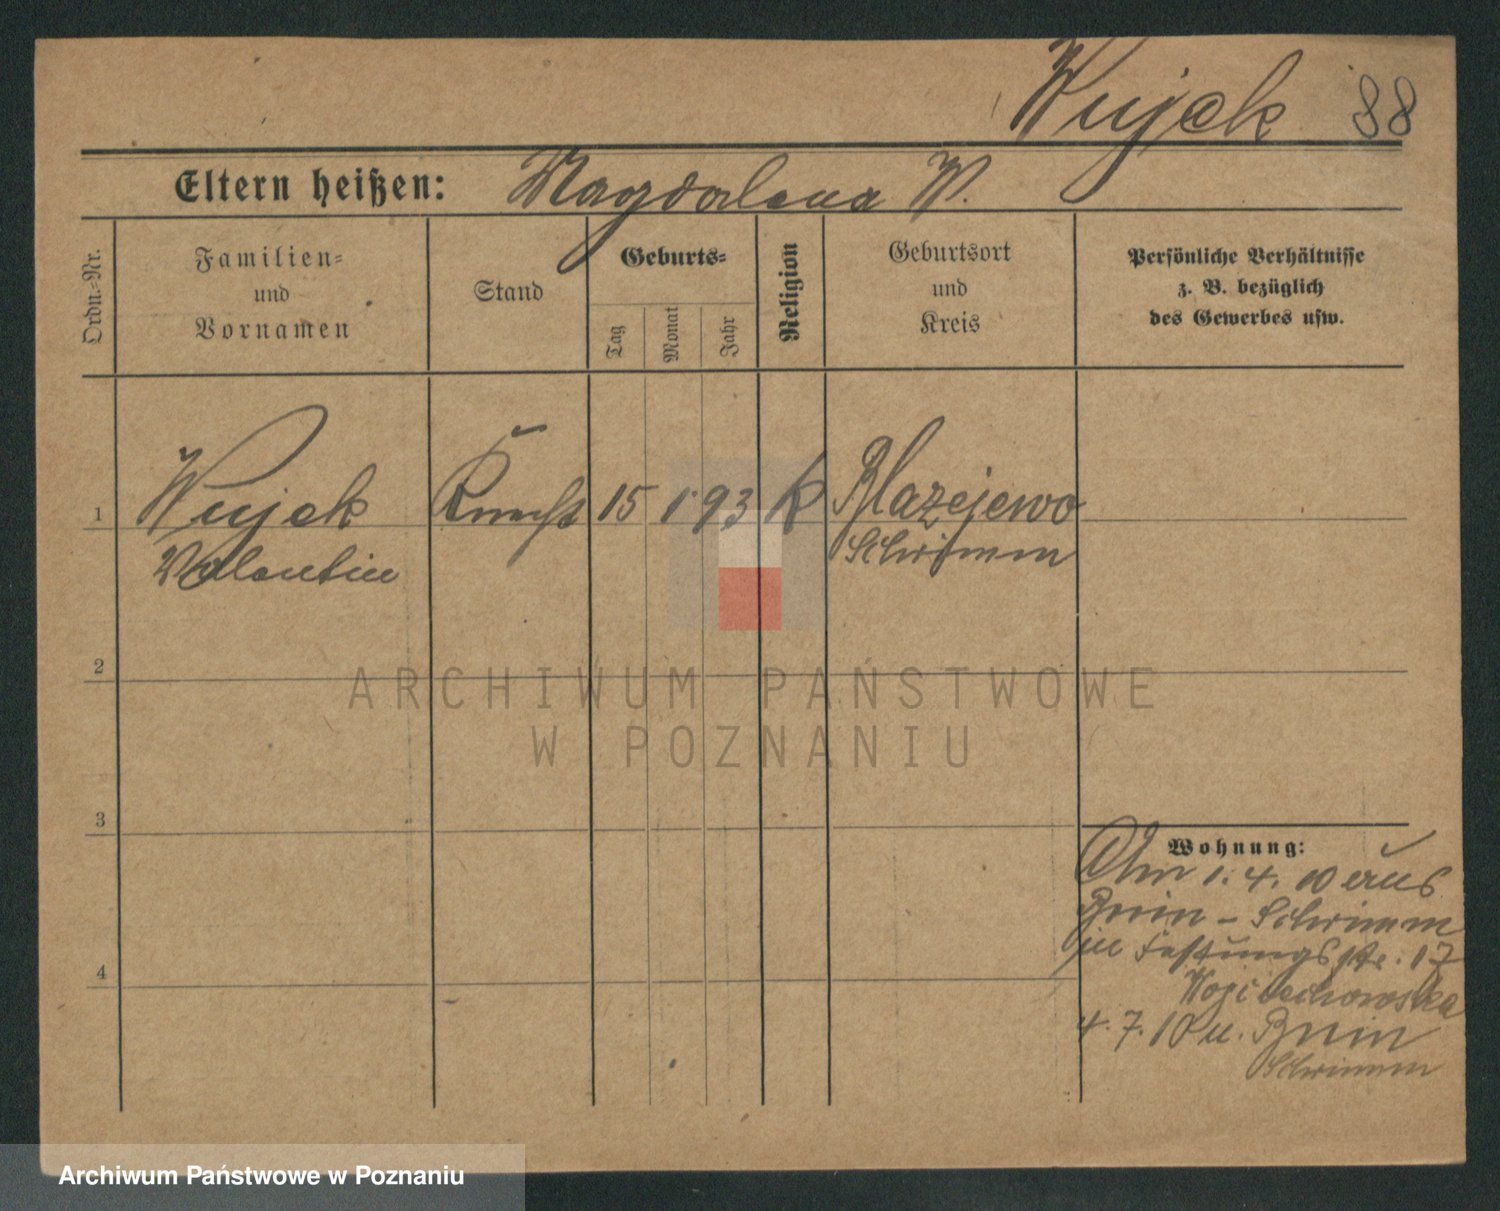 Wujek 88
Eltern heißen: Magdalena W.
Ordn.=Nr.
Familien=
und
Vornamen
Stand
Geburts=
Tag
Monat
Jahr
Religion
Geburtsort
und
Kreis
Persönliche Verhältnisse
z. B. bezüglich
des Gewerbes usw.
1 Wujek Knecht 15 1. 93 K Blazejewo
Valentin Schrimm
2
ARCHIWUM PAŃSTWOWE
W POZNANIU
3
Wohnung:
Am 1. 4. 10 aus
Bnin - Schrimm
in Festungsstr. 17
Wojciechowska
4
4. 7. 10 n. Bnin
Schrimm
Archiwum Państwowe w Poznaniu